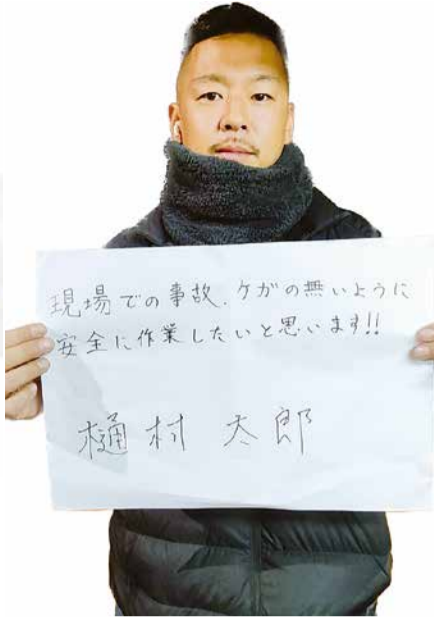 現場での事故、ケガの無いように
安全に作業したいと思います!!
樋村 太郎